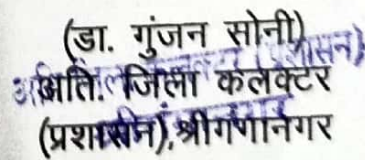 (डा. गुंजन सोनी)
अति. जिला कलेक्टर
(प्रशासन),श्रीगंगानगर